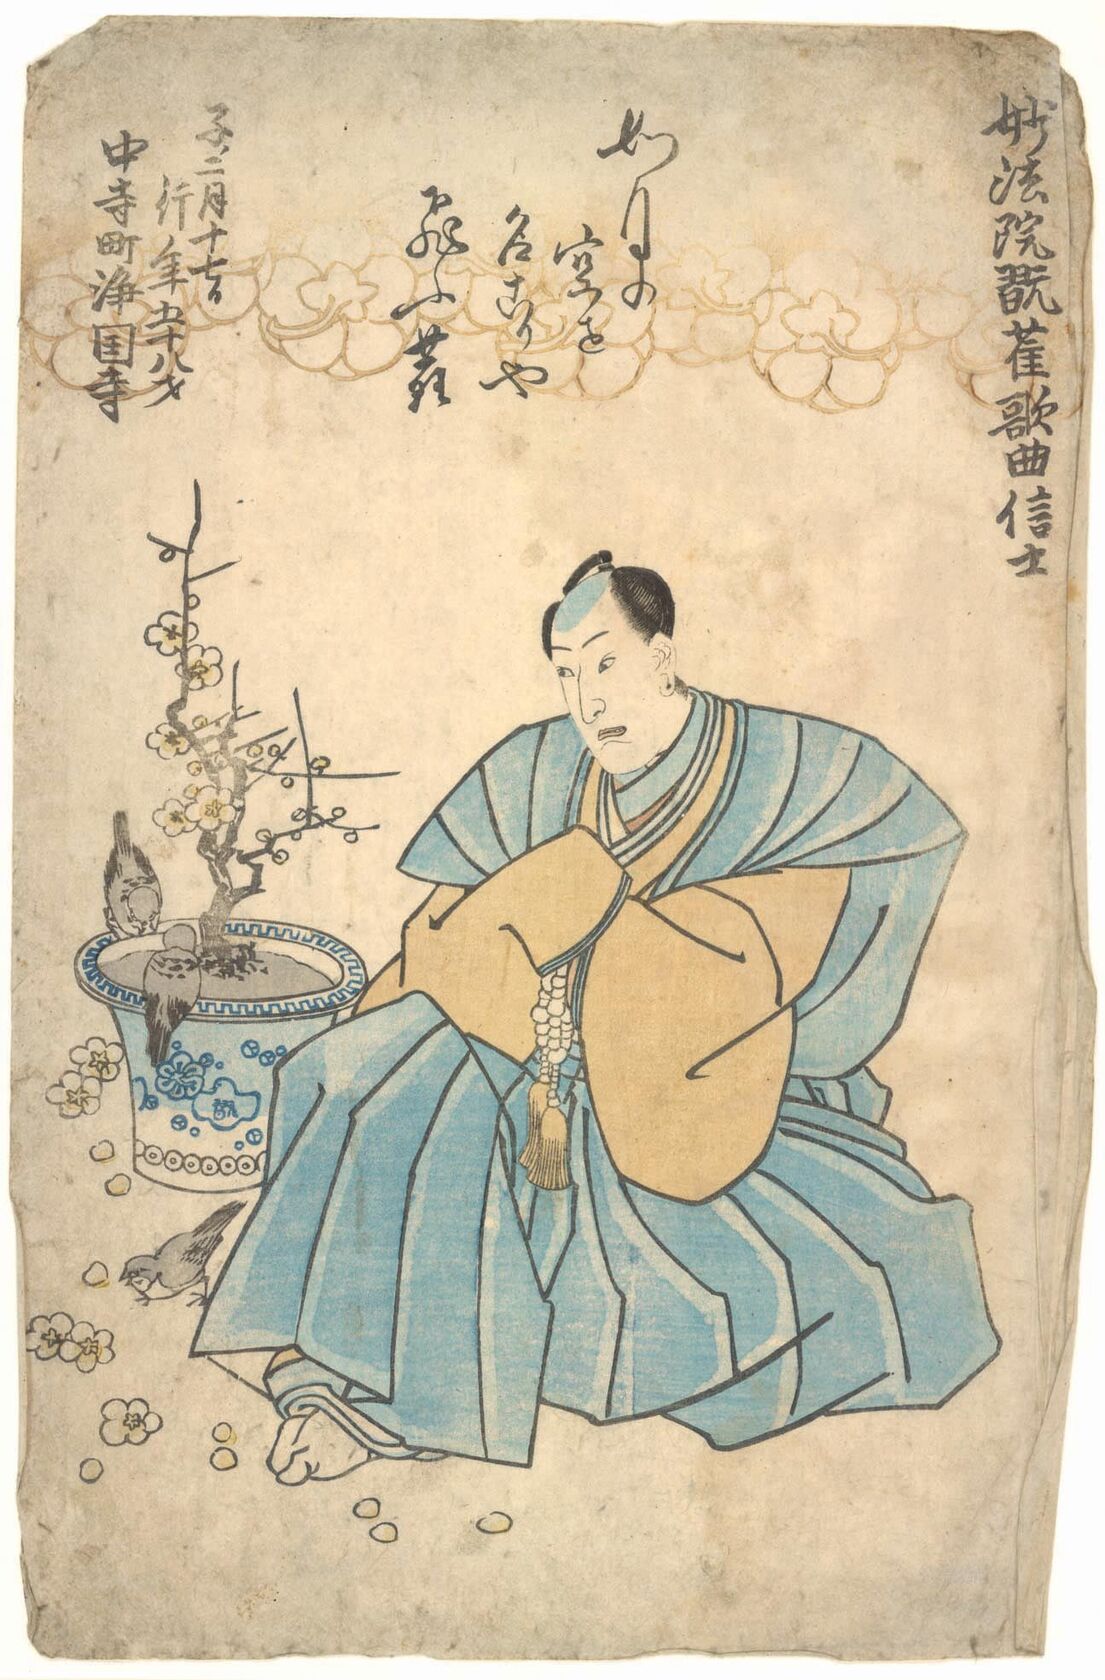 妙法院翫雀歌曲信士
如月の
空を
名こりや
飛ふ雀
子二月十七日
行年五十八才
中寺町浄国寺